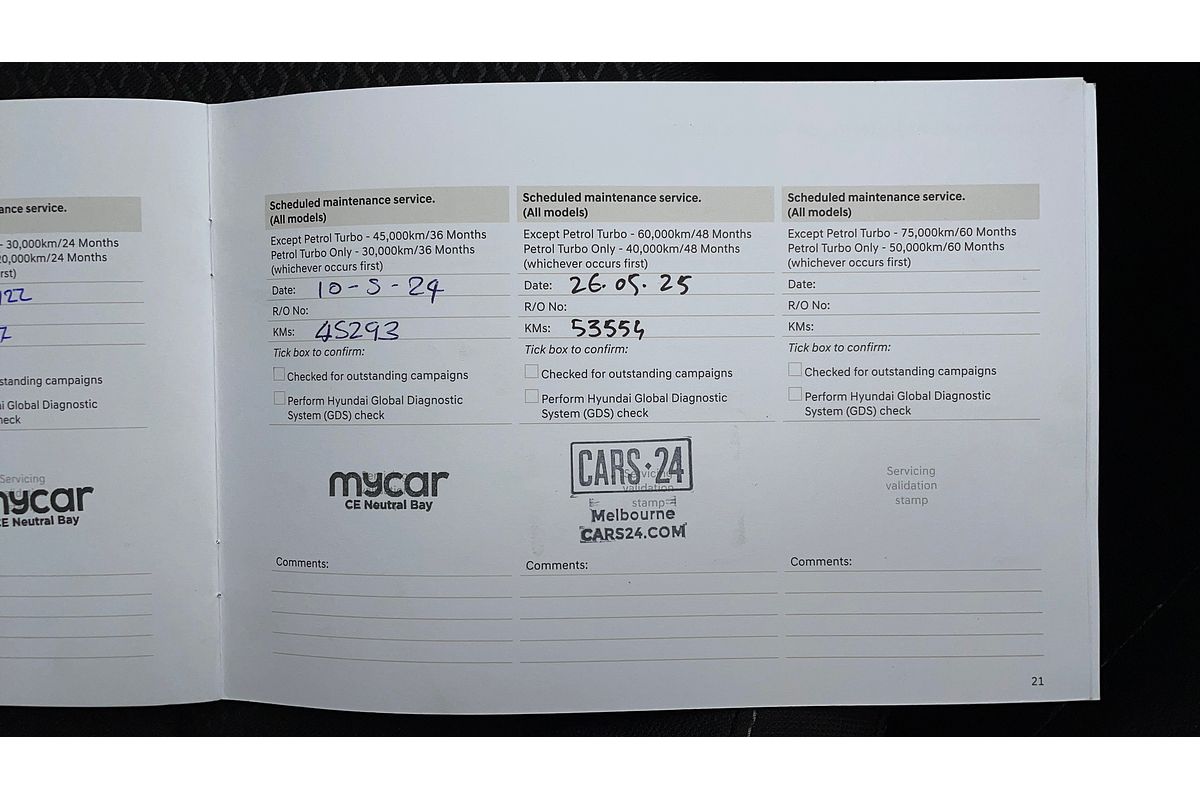 ance service.
- 30,000km/24 Months
20,000km/24 Months
rst)
122
7
standing campaigns
ai Global Diagnostic
heck
Servicing
mycar
CE Neutral Bay
Scheduled maintenance service.
(All models)
Except Petrol Turbo - 45,000km/36 Months
Petrol Turbo Only - 30,000km/36 Months
(whichever occurs first)
Date: 10-5-24
R/O No:
KMs: 45293
Tick box to confirm:
Checked for outstanding campaigns
Perform Hyundai Global Diagnostic
System (GDS) check
mycar
CE Neutral Bay
Comments:
Scheduled maintenance service.
(All models)
Except Petrol Turbo - 60,000km/48 Months
Petrol Turbo Only - 40,000km/48 Months
(whichever occurs first)
Date: 26.05.25
R/O No:
KMs: 53554
Tick box to confirm:
Checked for outstanding campaigns
Perform Hyundai Global Diagnostic
System (GDS) check
CARS·24
Servicing
validation
stamp
Melbourne
CARS24.COM
Comments:
Scheduled maintenance service.
(All models)
Except Petrol Turbo - 75,000km/60 Months
Petrol Turbo Only - 50,000km/60 Months
(whichever occurs first)
Date:
R/O No:
KMs:
Tick box to confirm:
Checked for outstanding campaigns
Perform Hyundai Global Diagnostic
System (GDS) check
Servicing
validation
stamp
Comments:
21